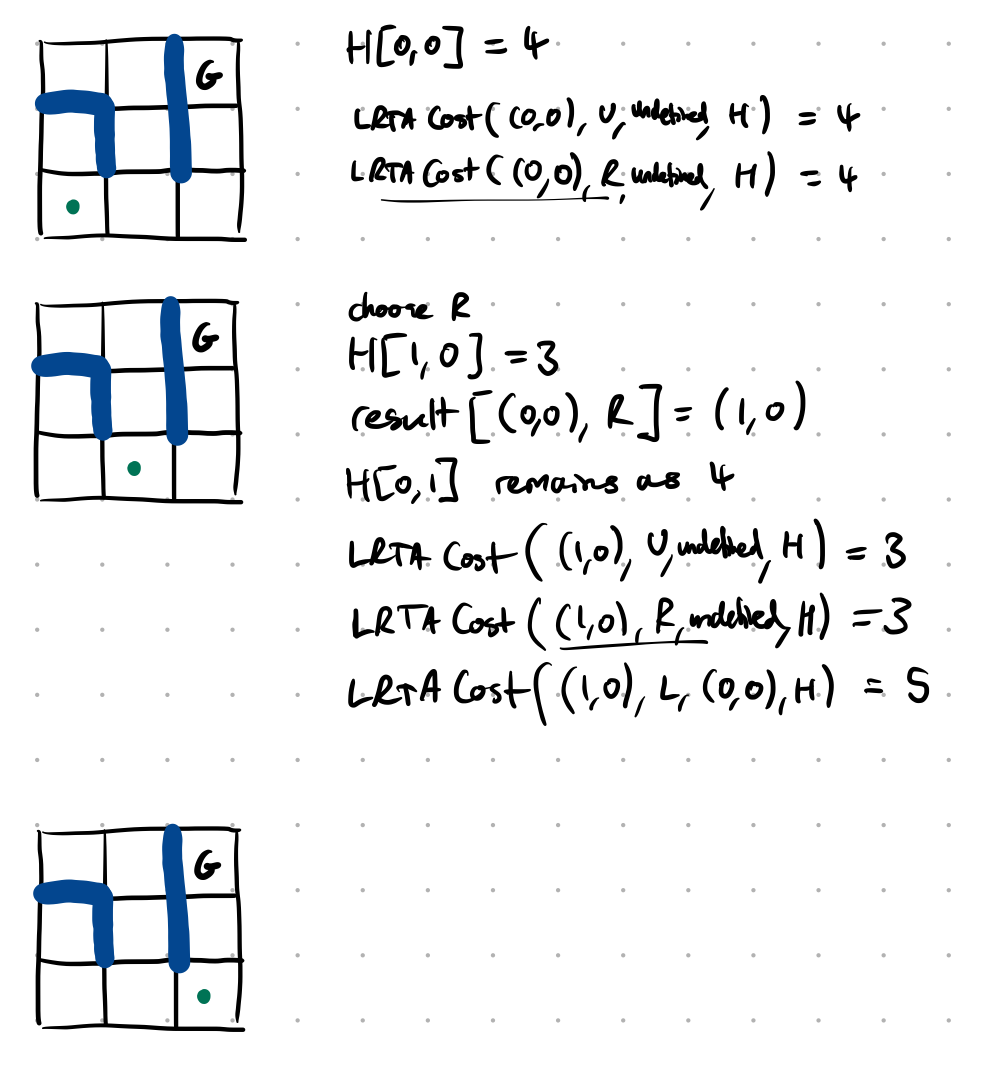 G
H[0,0] = 4
LRTA Cost( (0,0), U, undefined, H ) = 4
LRTA Cost( (0,0), R, undefined, H ) = 4
G
choose R
H[1,0] = 3
result [(0,0), R] = (1,0)
H[0,1] remains as 4
LRTA Cost( (1,0), U, undefined, H ) = 3
LRTA Cost( (1,0), R, undefined, H ) = 3
LRTA Cost( (1,0), L, (0,0), H ) = 5
G